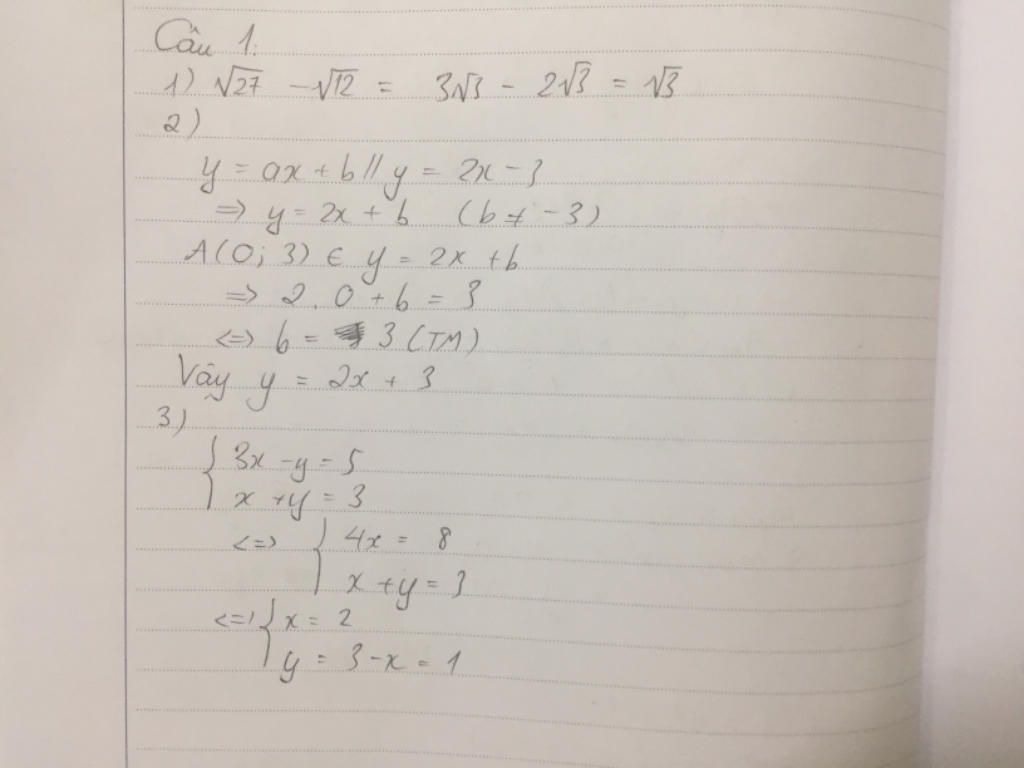 Câu 1:
1) √27 - √12 = 3√3 - 2√3 = √3
2)
y = ax + b // y = 2x - 3
=> y = 2x + b (b ≠ -3)
A(0; 3) ∈ y = 2x + b
=> 2 . 0 + b = 3
<=> b = 3 (TM)
Vậy y = 2x + 3
3)
{ 3x - y = 5
x + y = 3
<=> { 4x = 8
x + y = 3
<=> { x = 2
y = 3 - x = 1